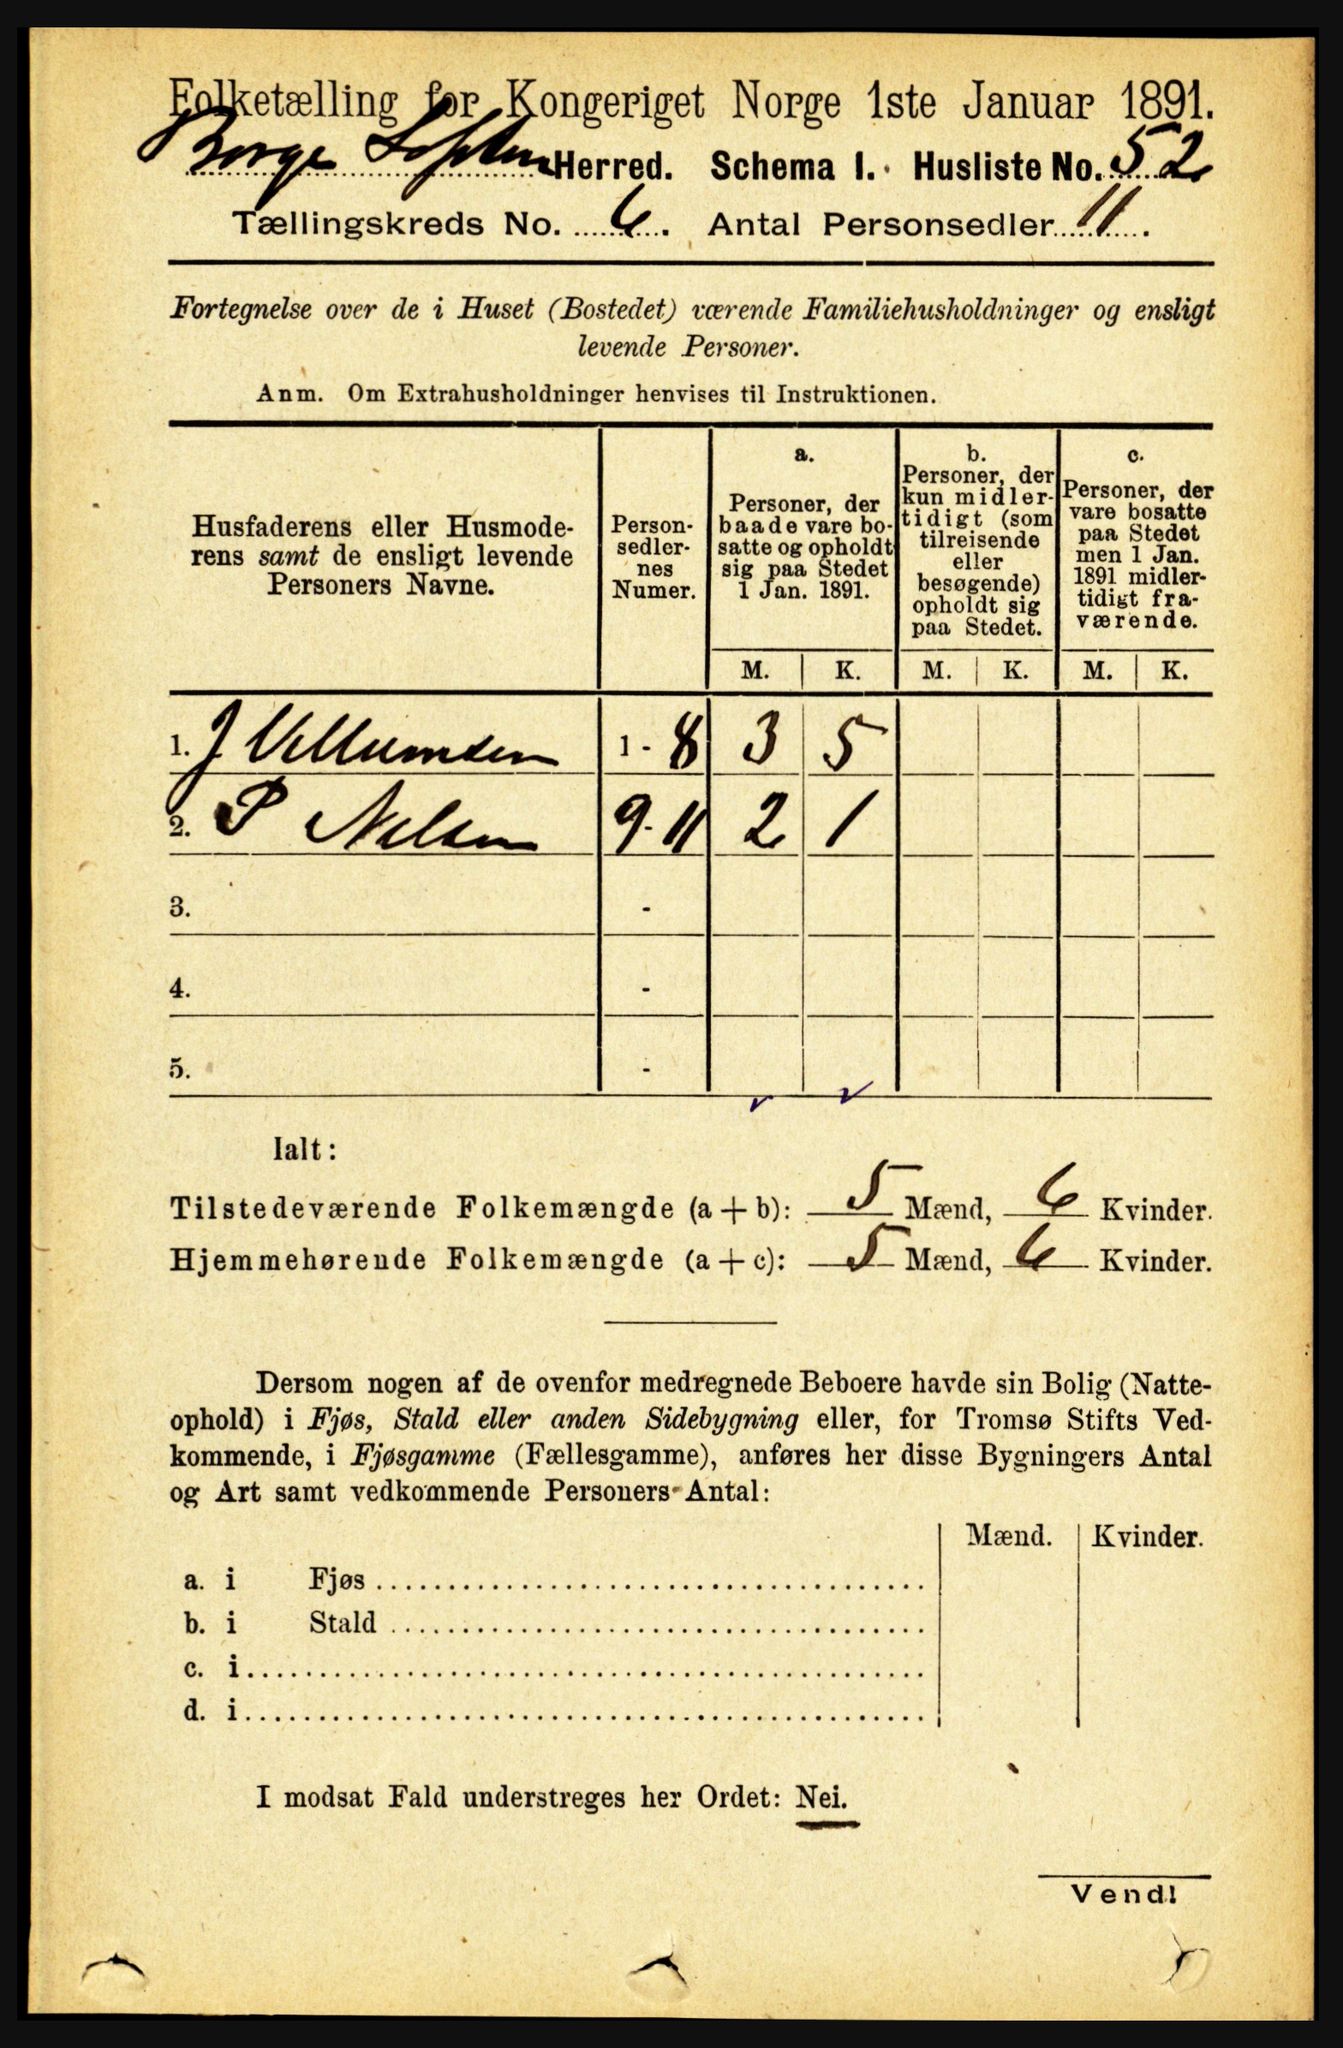 Folketælling for Kongeriget Norge 1ste Januar 1891.
Borge Lofoten Herred. Schema I. Husliste No. 52
Tællingskreds No. 6. Antal Personsedler 11.
Fortegnelse over de i Huset (Bostedet) værende Familiehusholdninger og ensligt
levende Personer.
Anm. Om Extrahusholdninger henvises til Instruktionen.
Husfaderens eller Husmode-
rens samt de ensligt levende
Personers Navne.
Person-
sedler-
nes
Numer.
a.
Personer, der
baade vare bo-
satte og opholdt
sig paa Stedet
1 Jan. 1891.
b.
Personer, der
kun midler-
tidigt (som
tilreisende
eller
besøgende)
opholdt sig
paa Stedet.
c.
Personer, der
vare bosatte
paa Stedet
men 1 Jan.
1891 midler-
tidigt fra-
værende.
M. K. M. K. M. K.
1. J Villumsen 1 - 8 3 5
2. P Nilsen 9-11 2 1
3. -
4. -
5. -
Ialt:
Tilstedeværende Folkemængde (a + b): 5 Mænd, 6 Kvinder.
Hjemmehørende Folkemængde (a + c): 5 Mænd, 6 Kvinder.
Dersom nogen af de ovenfor medregnede Beboere havde sin Bolig (Natte-
ophold) i Fjøs, Stald eller anden Sidebygning eller, for Tromsø Stifts Ved-
kommende, i Fjøsgamme (Fællesgamme), anføres her disse Bygningers Antal
og Art samt vedkommende Personers Antal:
Mænd. Kvinder.
a. i Fjøs
b. i Stald
c. i
d. i
I modsat Fald understreges her Ordet: Nei.
Vend!